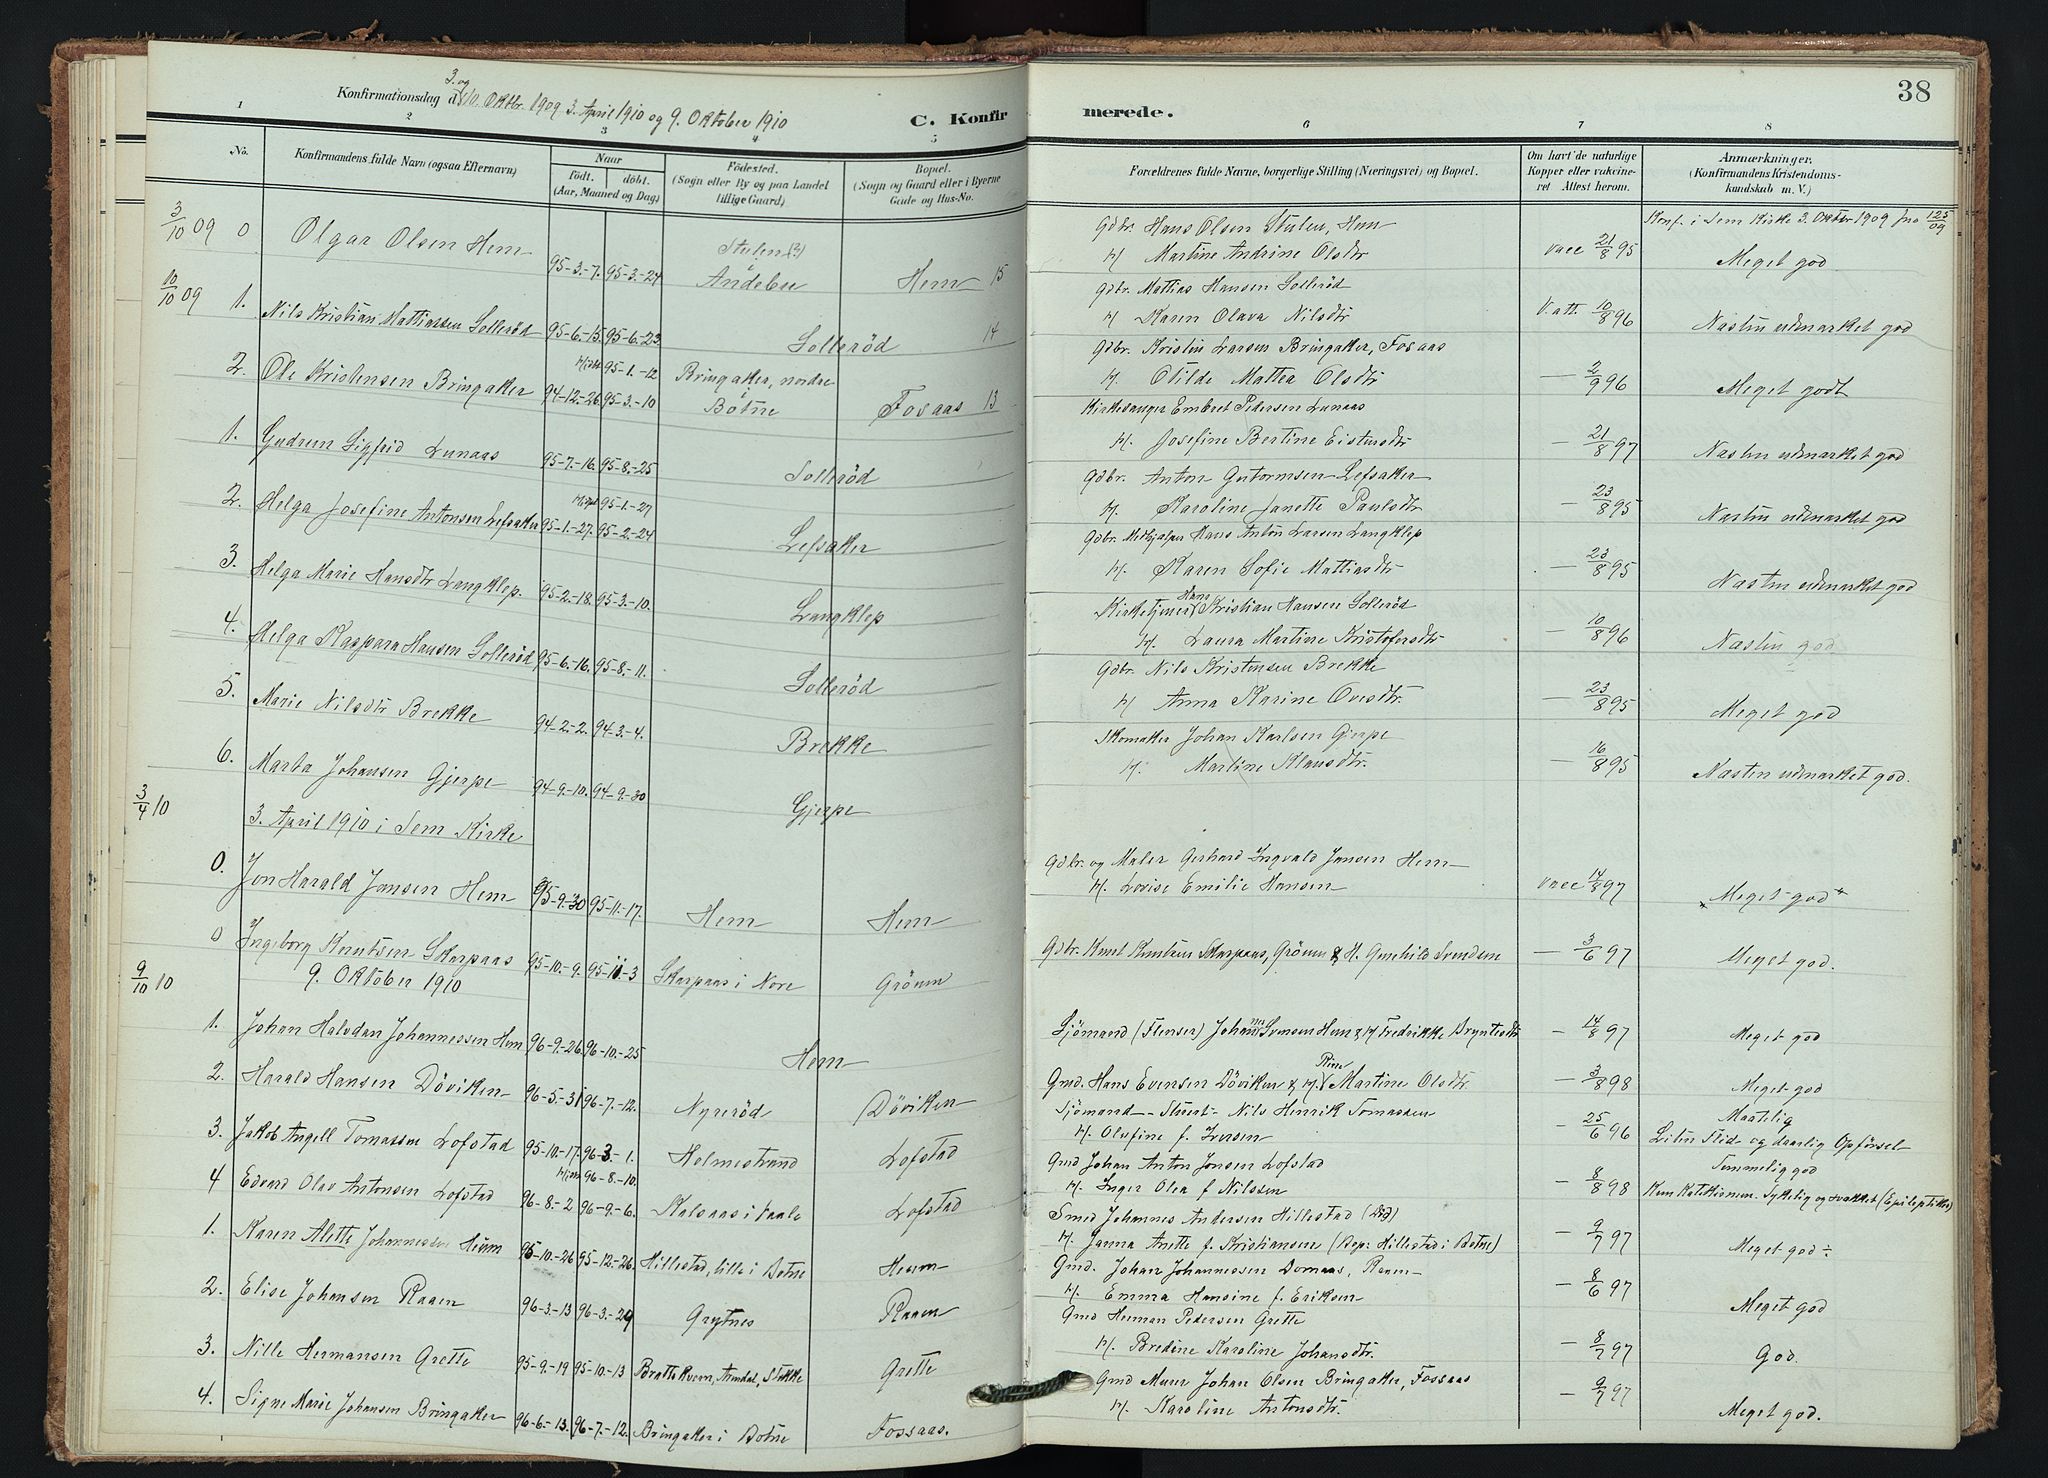 3. og
Konfirmationsdag d. 10. Oktbr. 1909 3. April 1910 og 9. Oktober 1910
C. Konfir
merede.
38
1 2 3 4 5 6 7 8
No.
Konfirmandens fulde Navn (ogsaa Efternavn)
Naar
födt. döbt.
(Aar, Maaned og Dag)
Födested.
(Sogn eller By og paa Landet
tillige Gaard)
Bopæl.
(Sogn og Gaard eller i Byerne
Gade og Hus-No.
Forældrenes fulde Navne, borgerlige Stilling (Næringsvei) og Bopæl.
Om havt de naturlige
Kopper eller vakcine-
ret Attest herom.
Anmærkninger.
(Konfirmandens Kristendoms-
kundskab m. V.)
3/10 09 0 Olgar Olsen Hem 95-3-7. 95-3-24 Stulen (?) i Andebu Hem 15
Gdbr. Hans Olsen Stulen, Hem
H/ Martine Andrine Olsdtr vacc 21/8 95
Konf. i Sem Kirke 3. Oktbr 1909 fra 125/09
Meget god
10/10 09 1. Nils Kristian Mattiassen Sollerød 95-6-15. 95-6-23 Sollerød 14
Gdbr. Mattias Hansen Sollerød
H/ Karen Olava Nilsdtr V. att. 10/8 96 Næsten udmærket god
2. Ole Kristensen Bringaker 94-12-26 Hjdbt 95-1-12 95-3-10 Bringaker, nordre i Botne Fosaas 13
Gdbr. Kristen Larsen Bringaker, Fosaas
H/ Otilde Mattea Olsdtr — 2/9 96 Meget godt
1. Gudrun Sigfrid Lunaas 95-7-16. 95-8-25 Sollerød
Kirkesanger Embret Pedersen Lunaas
H/. Josefine Bertine Eistensdtr — 21/8 97 Næsten udmærket god
2. Helga Josefine Antonsen Lefsaker 95-1-27. Hjdbt 95-1-27 95-2-24 Lefsaker
Gdbr. Anton Gutormsen Lefsaker
H/. Karoline Janette Paulsdtr — 23/8 95 Næsten udmærket god
3. Helga Marie Hansdtr Langklep. 95-2-18. 95-3-10. Langklep
Gdbr. Medhjælper Hans Anton Larsen Langklep
H/ Karen Sofie Mattiasdtr — 23/8 95 Næsten udmærket god
4. Helga Kaspara Hansen Sollerød 95-6-16. 95-8-11. Sollerød
Kirketjener Hans Kristian Hansen Sollerød
H/. Laura Martine Kristofersdtr — 10/8 96 Næsten god
5. Marie Nilsdtr Brekke 94-2-2. 94-3-4. Brekke
Gdbr. Nils Kristensen Brekke
H/ Anna Karine Ovesdtr. — 23/8 95 Meget god
6. Marta Johansen Gjerpe 94-9-10. 94-9-30 Gjerpe
Skomaker Johan Karlsen Gjerpe
H/. Martine Klausdtr. — 16/8 95 Næsten udmærket god.
3/4 10 3. April 1910 i Sem Kirke
0. Jon Harald Jansen Hem 95-9-30 95-11-17. Hem Hem
Gdbr. og Maler Gerhard Ingvald Jansen Hem
H/. Lovise Emilie Hansen vacc 14/8 97 Meget god
0 Ingeborg Knutsen Skarpaas 95-10-9. 95-11-3 Skarpaas i Nore Gröum
Gdbr. Knut Knutsen Skarpaas, Gröum & H. Gunhild Svendsen — 3/6 97 Meget god.
9/10 10 9. Oktober 1910
1. Johan Halvdan Johannessen Hem 96-9-26. 96-10-25 Hem
Sjömand (Flenser) Johannes Svensen Hem & H/ Fredrikke Bryntesdtr — 14/8 97 Meget god
2. Harald Hansen Döviken 96-5-31 96-7-12. Nyrerød Döviken
Gmd. Hans Evensen Döviken & H/. Martine Olsdtr. — 3/8 98 Meget god
3. Jakob Angell Tomassen Lofstad 95-10-17. 96-3-1. Holmestrand Lofstad
Sjömand - Stuert - Nils Henrik Tomassen
H. Olufine f. Iversen — 25/6 96 Maatelig
Liten Flid og daarlig Opförsel
4 Edvard Olav Antonsen Lofstad 96-8-2 Hjdbt 96-8-10. 96-9-6. Kalsaas i Vaale Lofstad
Gmd Johan Anton Jonsen Lofstad
H. Inger Olea f Nilssen — 8/8 98 Temmelig god
Kun Katekismen. Sykelig og svækket (Epileptiker)
1. Karen Alette Johannessen Heum 95-10-26 95-12-26. Hillestad, lille i Botne Heum
Smed Johannes Andersen Hillestad (Dög)
H. Janna Anette f. Kristiansen (Bop: Hillestad i Botne) — 9/7 97 Meget god ÷
2. Elise Johansen Raaen 96-3-13 96-3-29 Grytnes Raaen
Gmd. Johan Johannessen Domaas, Raaen
H. Emma Hansine f. Eriksen — 8/6 97 Meget god
3. Nille Hermansen Grette 95-9-19 95-10-13 Bratte Kvern, Arendal, Stokke Grette
Gmd Herman Pedersen Grette
H. Bredine Karoline Johansdtr. — 8/7 97 God.
4. Signe Marie Johansen Bringaker 96-6-13. 96-7-12. Bringaker i Botne Fossaas.
Gmd Murer Johan Olsen Bringaker, Fossaas
H. Karoline Antonsdtr. — 9/7 97 Meget god.